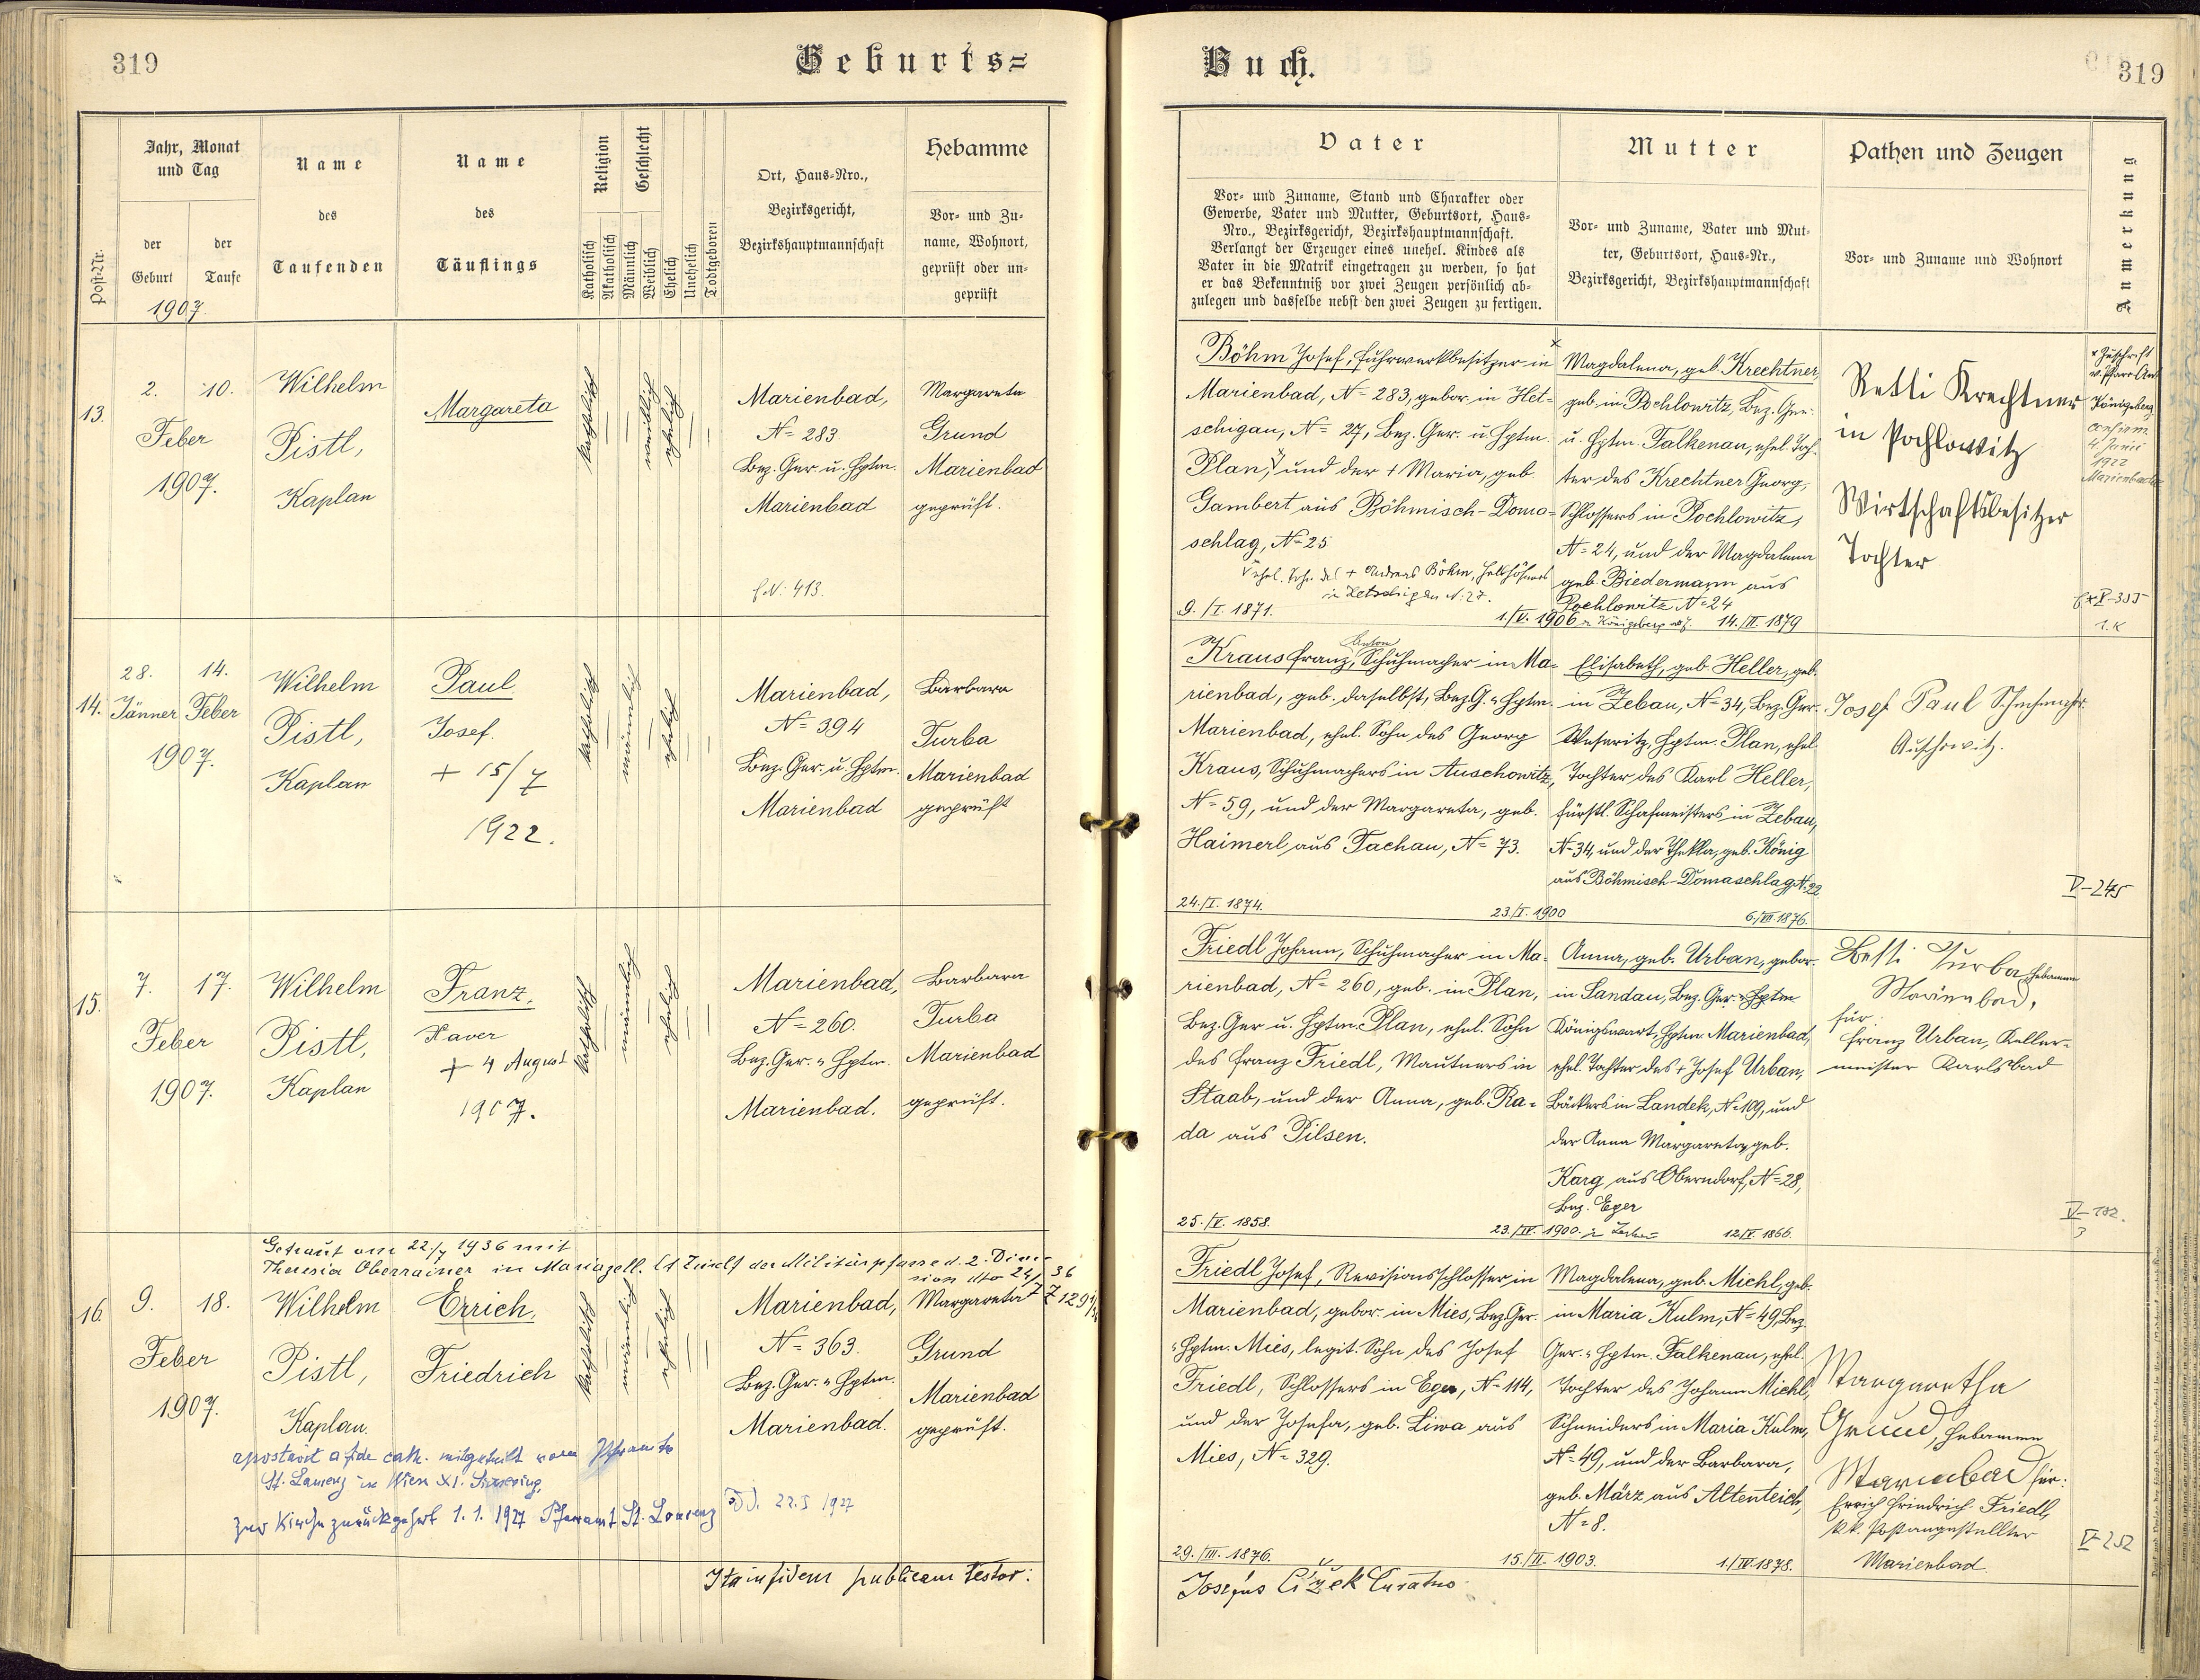 319
Geburts=
Jahr, Monat
und Tag
Name
Name
Religion
Geschlecht
Ort, Haus=Nro.,
Bezirksgericht,
Bezirkshauptmannschaft
Hebamme
Post=Nr.
der
Geburt
der
Taufe
des
Taufenden
des
Täuflings
Katholisch
Akatholisch
Männlich
Weiblich
Ehelich
Unehelich
Todtgeboren
Vor= und Zu=
name, Wohnort,
geprüft oder un=
geprüft
1907.
13.
2. 10.
Feber
1907.
Wilhelm
Pistl,
Kaplan
Margareta
katholisch
weiblich
ehelich
Marienbad,
N= 283
Bez. Ger. u. Hptm.
Marienbad
f. N: 413.
Margareta
Grund
Marienbad
geprüft.
14.
28. 14.
Jänner Feber
1907.
Wilhelm
Pistl,
Kaplan
Paul
Josef.
+ 15/7
1922.
katholisch
männlich
ehelich
Marienbad,
N= 394
Bez. Ger. u. Hptm.
Marienbad
Barbara
Turba
Marienbad
geprüft
15.
7. 17.
Feber
1907.
Wilhelm
Pistl,
Kaplan
Franz.
Xaver
+ 4 August
1907.
katholisch
männlich
ehelich
Marienbad,
N= 260.
Bez. Ger. u. Hptm.
Marienbad.
Barbara
Turba
Marienbad
geprüft.
Getraut am 22./7 1936 mit
Theresia Oberrainer in Mariazell. Lt Zuschf der Militärpfarre d. 2. Divi=
sion dto 24/7 36
Z 129 1/2
16.
9. 18.
Feber
1907.
Wilhelm
Pistl,
Kaplan.
Errich,
Friedrich
katholisch
männlich
ehelich
Marienbad,
N= 363.
Bez. Ger. u. Hptm.
Marienbad.
Margareta
Grund
Marienbad
geprüft.
apostavit a fide cath. mitgeteilt vom Pfarramte
St. Lorenz in Wien XI. Simmering.
Zur Kirche zurückgekehrt 1. 1. 1927 Pfarramt St. Lorenz
dd. 22. I 1927
Ita in fidem publicam testor:
Buch.
319
Vater
Vor= und Zuname, Stand und Charakter oder
Gewerbe, Vater und Mutter, Geburtsort, Haus=
Nro., Bezirksgericht, Bezirkshauptmannschaft.
Verlangt der Erzeuger eines unehel. Kindes als
Vater in die Matrik eingetragen zu werden, so hat
er das Bekenntniß vor zwei Zeugen persönlich ab=
zulegen und dasselbe nebst den zwei Zeugen zu fertigen.
Mutter
Vor= und Zuname, Vater und Mut=
ter, Geburtsort, Haus=Nr.,
Bezirksgericht, Bezirkshauptmannschaft
Pathen und Zeugen
Vor= und Zuname und Wohnort
Anmerkung
Böhm Josef, Fuhrwerkbesitzer in
Marienbad, N= 283, gebor. in Het=
schigau, N= 27, Bez. Ger. u. Hptm.
Plan, und der + Maria, geb.
Gambert aus Böhmisch-Doma=
schlag, N= 25
ehel. Sohn des + Andreas Böhm, Halbhöfners
in Hetschigau N: 27.
9. /I. 1871.
1./V. 1906 in Königsberg
Magdalena, geb. Krechtner,
geb. in Pochlowitz, Bez. Ger.
u. Hptm. Falkenau, ehel. Toch=
ter des Krechtner Georg,
Schlossers in Pochlowitz,
N= 24, und der Magdalena
geb. Biedermann aus
Pochlowitz N= 24
14./III. 1879
Retti Krechtner
in Pochlowitz
Wirtschaftsbesitzer
Tochter
x Zuschrift
v. Pfarr Amt
Königsberg
confirm.
4. Juni
1922
Marienbad
Kraus Franz, Anton Schuhmacher in Ma=
rienbad, geb. daselbst, Bez. G. u. Hptm.
Marienbad, ehel. Sohn des Georg
Kraus, Schuhmachers in Auschowitz,
N= 59, und der Margareta, geb.
Haimerl aus Tachau, N= 73.
24./I. 1874.
23./I. 1900
Elisabeth, geb. Heller, geb.
in Zebau, N= 34, Bez. Ger.
Weseritz, Hptm. Plan, ehel.
Tochter des Karl Heller,
fürstl. Schafmeisters in Zebau,
N= 34, und der Thekla, geb. König
aus Böhmisch-Domaschlag, N. 22
6./VII. 1876.
Josef Paul Schuhmacher
Auschowitz.
V-245
Friedl Johann, Schuhmacher in Ma=
rienbad, N= 260, geb. in Plan,
Bez. Ger u. Hptm. Plan, ehel. Sohn
des Franz Friedl, Mautners in
Staab, und der Anna, geb. Ra=
da aus Pilsen.
25./V. 1858.
23./IV. 1900.
Anna, geb. Urban, gebor.
in Sandau, Bez. Ger. u. Hptm
Königswart, Hptm. Marienbad,
ehel. Tochter des + Josef Urban,
Bäckers in Landek, N. 109, und
der Anna Margareta, geb.
Karg aus Oberndorf, N= 28,
Bez. Eger
12./V. 1866.
Betti Turba Hebamme
Marienbad,
für
Franz Urban, Keller=
meister Karlsbad
Friedl Josef, Revisionsschlosser in
Marienbad, gebor. in Mies, Bez. Ger.
u. Hptm. Mies, legit. Sohn des Josef
Friedl, Schlossers in Eger, N= 114,
und der Josefa, geb. Liwa aus
Mies, N= 329.
29./III. 1876.
15./II. 1903.
Magdalena, geb. Michl, geb.
in Maria Kulm, N= 49, Bez.
Ger. u. Hptm. Falkenau, ehel.
Tochter des Johann Michl,
Schneiders in Maria Kulm,
N= 49, und der Barbara,
geb. März aus Altenteich,
N= 8.
1./IV. 1878.
Margaretha
Grund, Hebamme
Marienbad für:
Errich Friedrich Friedl,
k.k. Postangestellter
Marienbad
V-252
Josefus Čížek Curatus